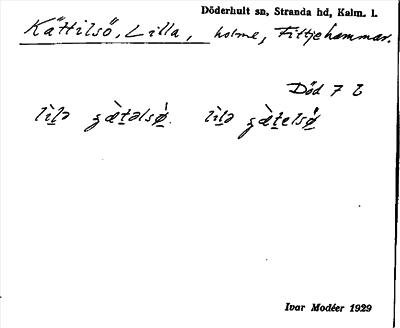 Döderhult sn, Stranda hd, Kalm. l.
Kättilsö, Lilla, holme, Fittjehammar.
Död 7 b
lìlə ʒæ̀təlsǿ. lìlə ʒæ̀telsǿ
Ivar Modéer 1929